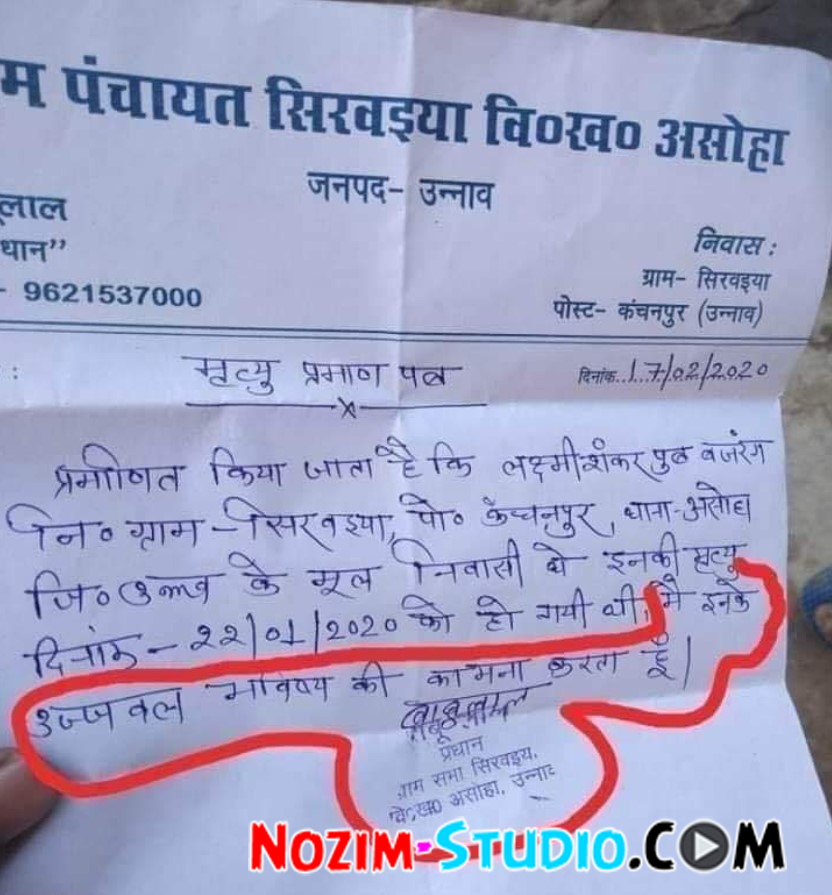 म पंचायत सिरवइया वि०ख० असोहा
जनपद- उन्नाव
लाल
धान”
- 9621537000
निवास :
ग्राम- सिरवइया
पोस्ट- कंचनपुर (उन्नाव)
:
मृत्यु प्रमाण पत्र
दिनांक...17/02/2020
प्रमाणित किया जाता है कि लक्ष्मीशंकर पुत्र बजरंग
नि० ग्राम - सिरवइया, पो० कंचनपुर, थाना-असोहा
जि० उन्नाव के मूल निवासी थे इनकी मृत्यु
दिनांक - 22/01/2020 को हो गयी थी, मै इनके
उज्जवल भविष्य की कामना करता हूँ।
बाबूलाल
प्रधान
ग्राम सभा सिरवइया,
वि०ख० असोहा, उन्नाव
NOZIM-STUDIO.COM